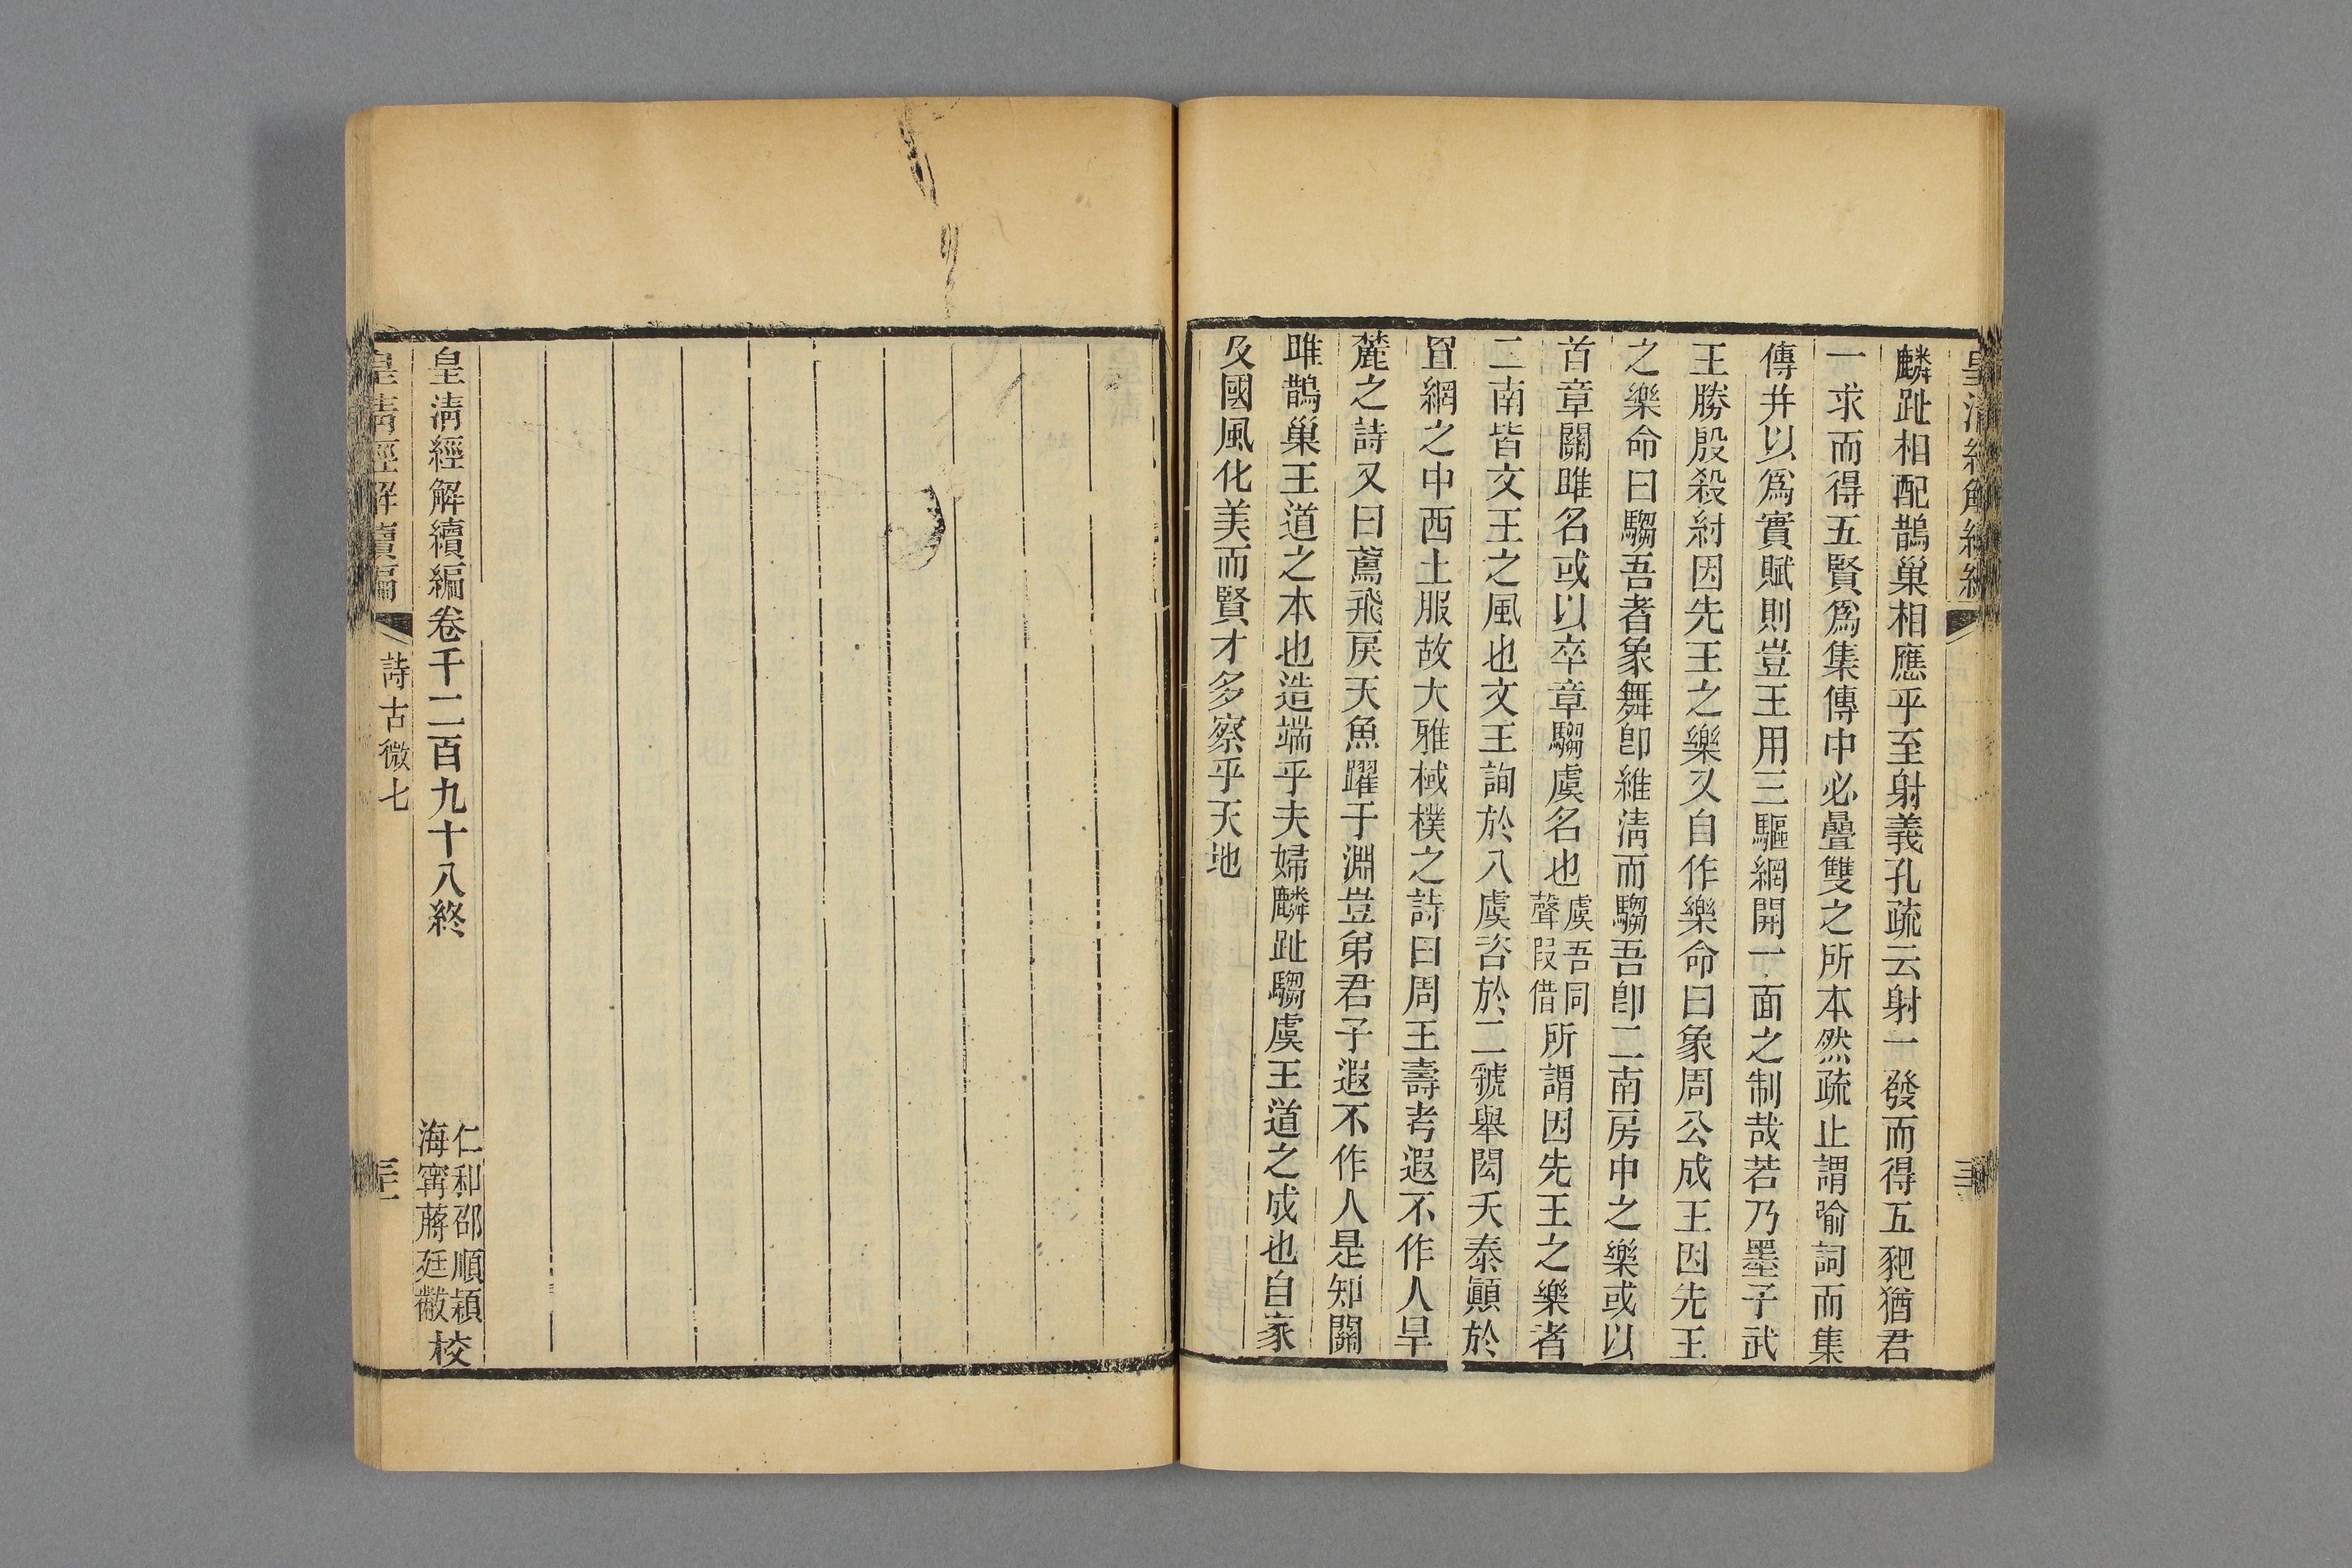 麟趾相配鵲巢相應乎至射義孔疏云射一發而得五豝猶君
一求而得五賢爲集傳中必疊雙之所本然疏止謂喻詞而集
傳并以爲實賦則豈王用三驅網開一面之制哉若乃墨子武
王勝殷殺紂因先王之樂又自作樂命曰象周公成王因先王
之樂命曰騶吾者象舞卽維淸而騶吾卽二南房中之樂或以
首章關雎名或以卒章騶虞名也虞吾同聲叚借所謂因先王之樂者
二南皆文王之風也文王詢於八虞咨於二虢舉閎夭泰顚於
罝網之中西土服故大雅棫樸之詩曰周王壽考遐不作人旱
麓之詩又曰鳶飛戾天魚躍于淵豈弟君子遐不作人是知關
雎鵲巢王道之本也造端乎夫婦麟趾騶虞王道之成也自家
及國風化美而賢才多察乎天地
皇淸經解續編卷千二百九十八終
仁和邵順穎
海甯蔣廷黻
校
皇淸經解續編
詩古微七